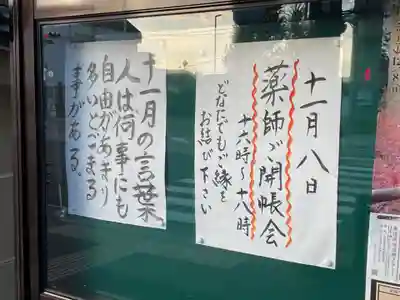 十一月八日
薬師ご開帳会
十六時〜十八時
どなたでもご縁を
お結び下さい
十一月の言葉
人は何事にも
自由があまり
多いとこまる
事がある。